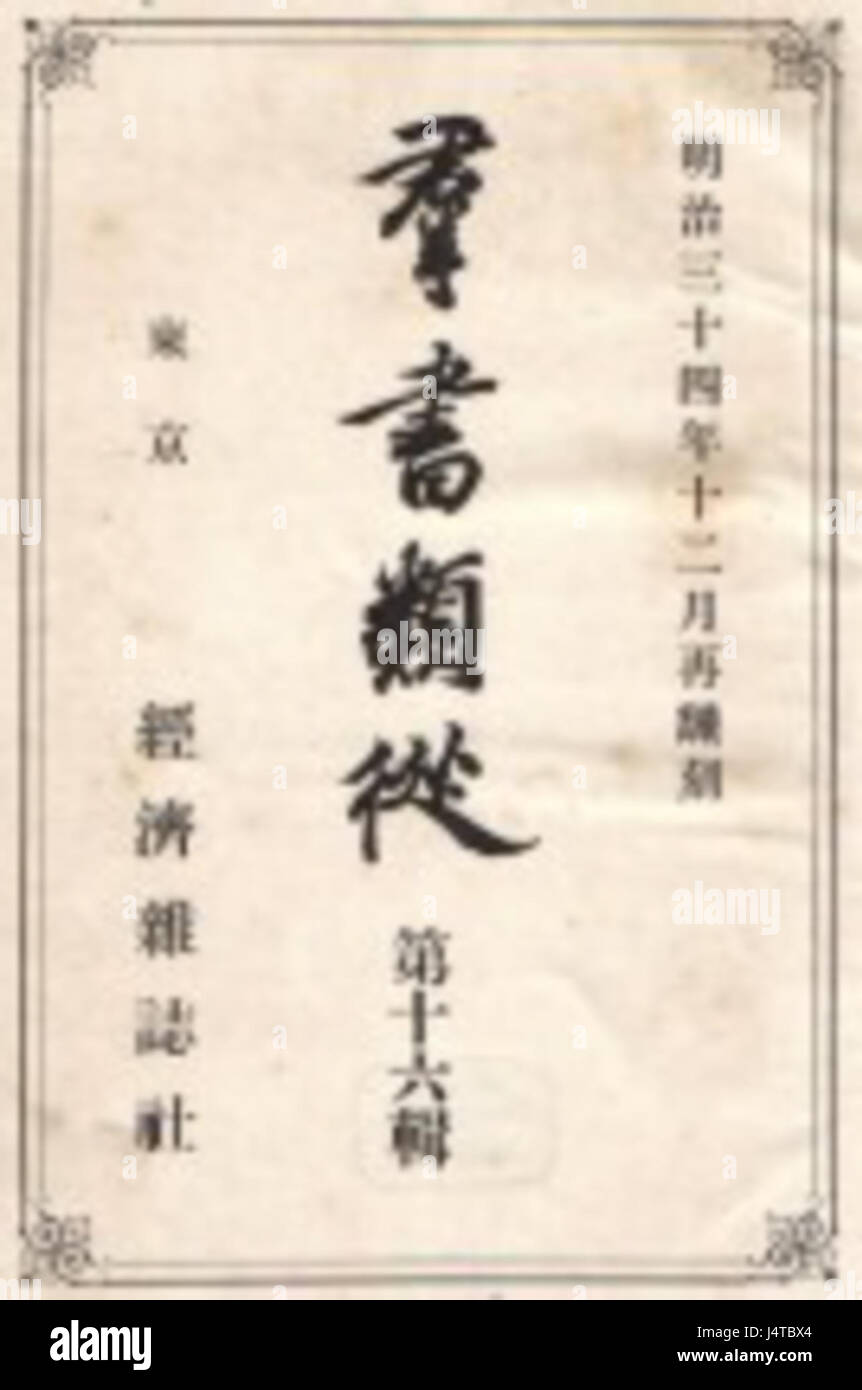 明治三十四年十二月再飜刻
羣書類從
第十六輯
東京
經濟雜誌社
alamy
Image ID: J4TBX4
www.alamy.com